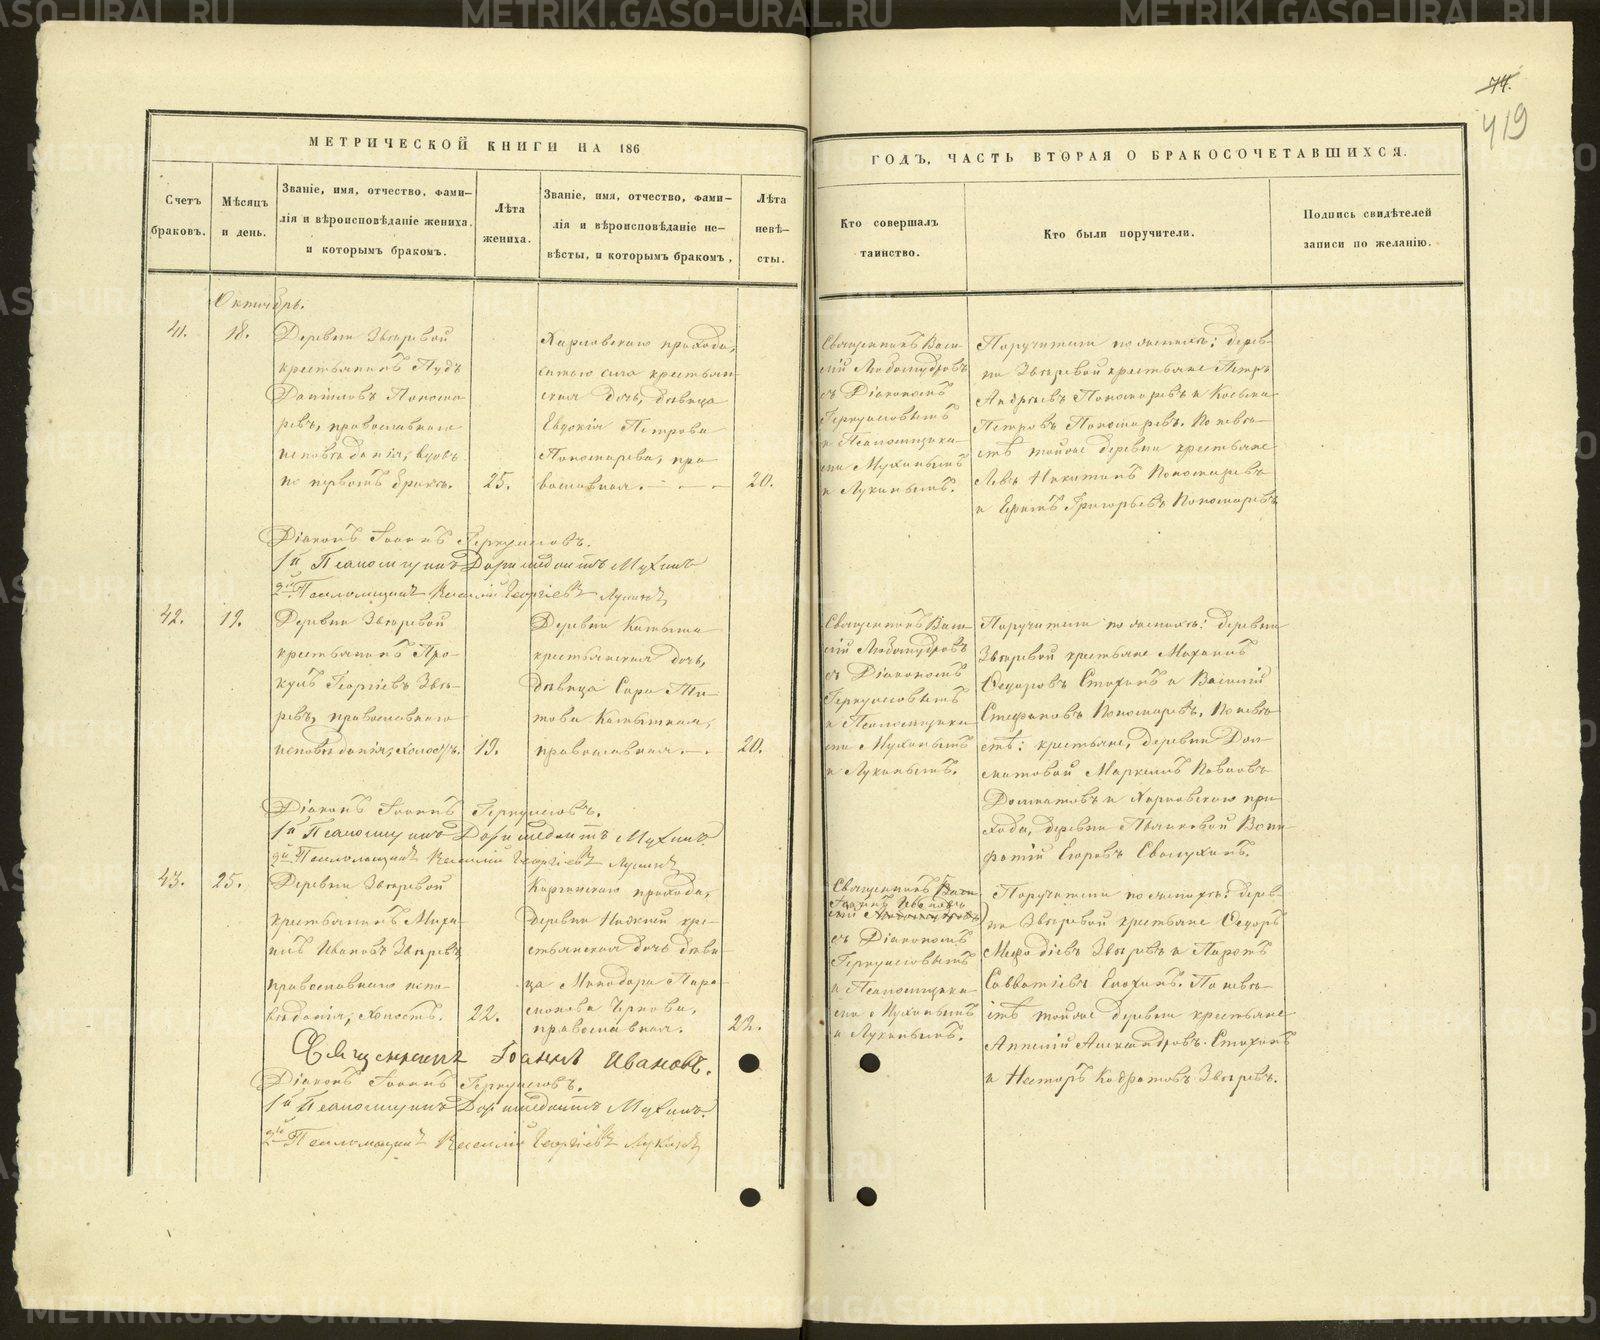 74.
419
МЕТРИЧЕСКОЙ КНИГИ НА 186
ГОДЪ, ЧАСТЬ ВТОРАЯ О БРАКОСОЧЕТАВШИХСЯ.
Счетъ
браковъ.
Мѣсяцъ
и день.
Званіе, имя, отчество, фами-
лія и вѣроисповѣданіе жениха
и которымъ бракомъ.
Лѣта
жениха.
Званіе, имя, отчество, фами-
лія и вѣроисповѣданіе не-
вѣсты, и которымъ бракомъ,
Лѣта
невѣ-
сты.
Кто совершалъ
таинство.
Кто были поручители.
Подпись свидѣтелей
записи по желанію.
Октябрь.
41.
18.
Деревни Звѣревой
крестьянинъ Пудъ
Даніиловъ Понома-
ревъ, православнаго
исповѣданія, вдовъ
по первомъ бракѣ.
25.
прихода,
села крестьян-
ская дочь, дѣвица
Евдокія Петрова
Пономарева, пра-
вославная.
20.
Священникъ Васи-
лій Любомудровъ
съ Діакономъ
и Псаломщика-
ми Мухинымъ
и Лукинымъ.
Поручители по женихѣ: дерев-
ни Звѣревой крестьяне Петръ
Андреевъ Пономаревъ и Косьма
Петровъ Пономаревъ. По невѣ-
стѣ тойже деревни крестьяне
Левъ Никитинъ Пономаревъ
и Григорьевъ Пономаревъ
Діаконъ Іоаннъ
1й Псаломщикъ Доримедонтъ Мухинъ
2й Псаломщикъ Василій Георгіевъ Лукинъ
42.
19.
Деревни Звѣревой
крестьянинъ Про-
купъ Георгіевъ Звѣ-
ревъ, православнаго
исповѣданія, холостъ.
19.
Деревни
крестьянская дочь,
дѣвица Сара Ти-
това
православная.
20.
Священникъ Васи-
лій Любомудровъ
съ Діакономъ
и Псаломщика-
ми Мухинымъ
и Лукинымъ.
Поручители по женихѣ: деревни
Звѣревой крестьяне Михаилъ
Ѳедоровъ Епохинъ и Василій
Стефановъ Пономаревъ. По невѣ-
стѣ: крестьяне, деревни Дол-
матовой Маркелъ Павловъ
Долматовъ и Харловскаго при-
хода, деревни Вони-
фатій Егоровъ
Діаконъ Іоаннъ
1й Псаломщикъ Доримедонтъ Мухинъ.
2й Псаломщикъ Василій Георгіевъ Лукинъ
43.
25.
Деревни Звѣревой
крестьянинъ Миха-
илъ Ивановъ Звѣревъ
православнаго испо-
вѣданія, холостъ.
22.
прихода,
деревни кре-
стьянская дочь дѣви-
ца Минодора Пара-
монова
православная.
22.
Священникъ
Іоаннъ Ивановъ
съ Діакономъ
и Псаломщика-
ми Мухинымъ
и Лукинымъ.
Поручители по женихѣ: дерев-
ни Звѣревой крестьяне Ѳедоръ
Меѳодіевъ Звѣревъ и
Савватіевъ Епохинъ. По невѣ-
стѣ тойже деревни крестьяне
Александровъ Епохинъ
и Несторъ Звѣревъ.
Священникъ Іоаннъ Ивановъ.
Діаконъ Іоаннъ
1й Псаломщикъ Доримедонтъ Мухинъ.
2й Псаломщикъ Василій Георгіевъ Лукинъ
METRIKI.GASO-URAL.RU